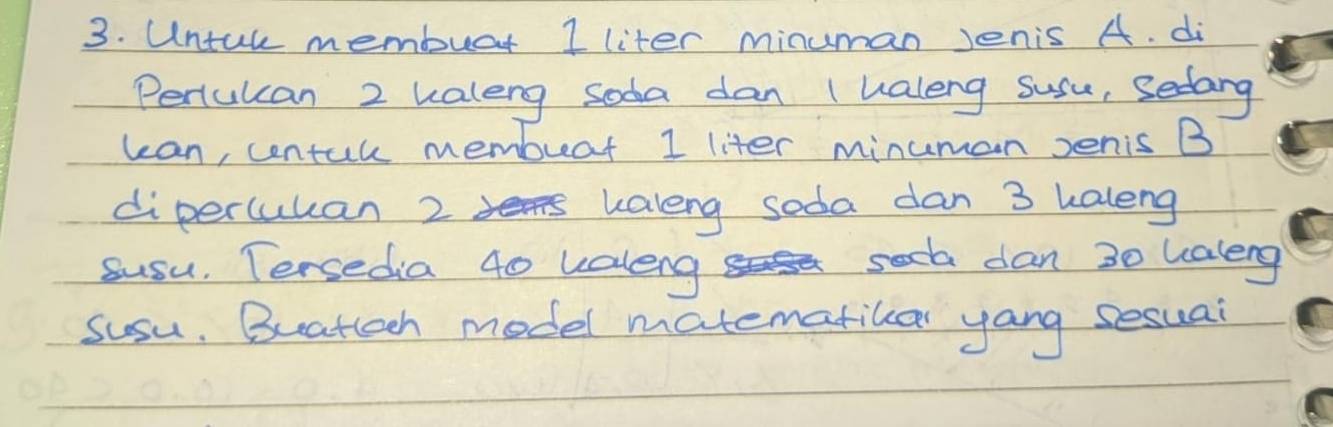 3. Untuk membuat 1 liter minuman Jenis A. di
Perlukan 2 kaleng soda dan 1 kaleng susu, sedang
kan, untuk membuat 1 liter minuman Jenis B
diperlukan 2 kaleng soda dan 3 kaleng
susu. Tersedia 40 kaleng soda dan 30 kaleng
susu. Buatlah model matematika yang sesuai